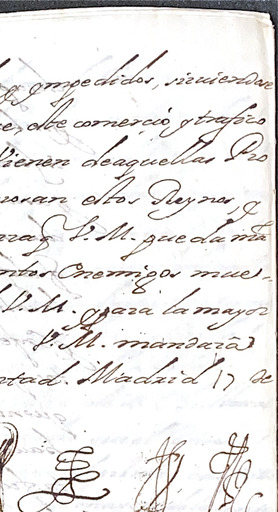 y ympedidos, siruiendose
este comercio, y trafico
Vienen de aquellas Pro
estos Reynos, q
V. M. pueda ma
ntos Enemigos mue-
V. M. y para la mayor
V. M. mandara
ntad. Madrid 17 de